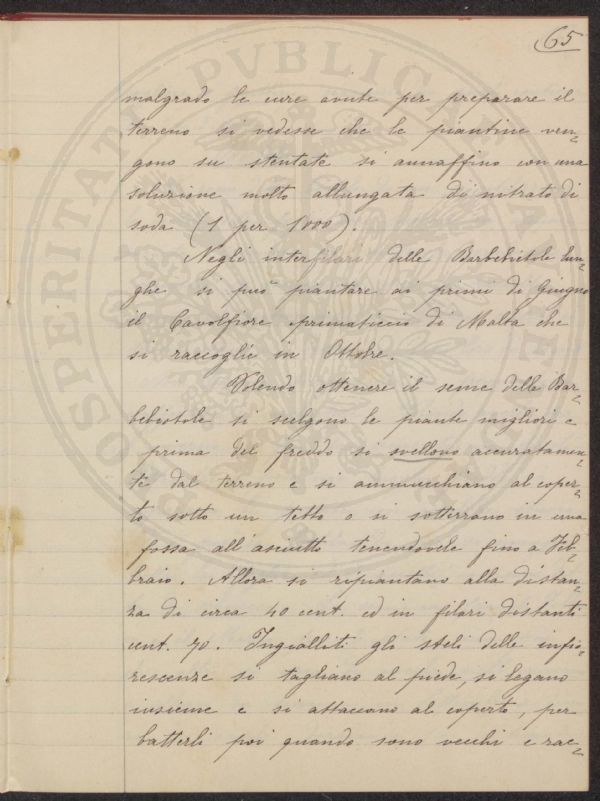 65
malgrado le cure avute per preparare il
terreno si vedesse che le piantine ven=
gono su stentate si annaffino con una
soluzione molto allungata di nitrato di
soda (1 per 1000).
Negli interfilari delle Barbebietole lun=
ghe si può piantare ai primi di Giugno
il Cavolfiore primaticcio di Malta che
si raccoglie in Ottobre.
Volendo ottenere il seme delle Bar=
bebietole si scelgono le piante migliori e
prima del freddo si svellono accuratamen=
te dal terreno e si ammucchiano al coper=
to sotto un tetto o si sotterrano in una
fossa all'asciutto tenendovele fino a Feb=
braio. Allora si ripiantano alla distan=
za di circa 40 cent. ed in filari distanti
cent. 70. Ingialliti gli steli delle infio=
rescenze si tagliano al piede, si legano
insieme e si attaccano al coperto, per
batterli poi quando sono vecchi e rac=